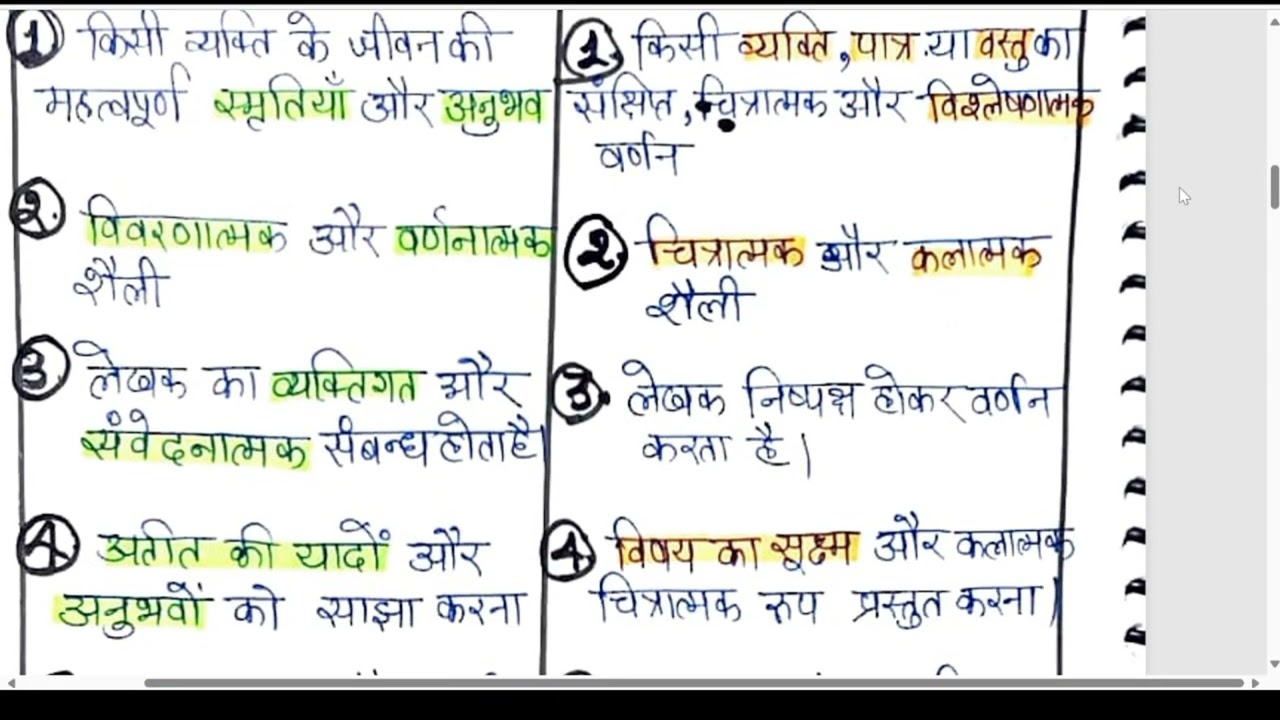 1 किसी व्यक्ति के जीवन की
महत्वपूर्ण स्मृतियाँ और अनुभव
2. विवरणात्मक और वर्णनात्मक
शैली
3 लेखक का व्यक्तिगत और
संवेदनात्मक संबन्ध होता है।
4 अतीत की यादों और
अनुभवों को साझा करना
1. किसी व्यक्ति, पात्र या वस्तु का
संक्षिप्त, चित्रात्मक और विश्लेषणात्मक
वर्णन
2. चित्रात्मक और कलात्मक
शैली
3. लेखक निष्पक्ष होकर वर्णन
करता है।
4. विषय का सूक्ष्म और कलात्मक
चित्रात्मक रूप प्रस्तुत करना।